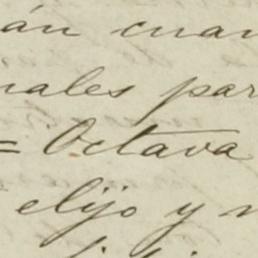 án cuan
nales par
= Octava
elijo y n